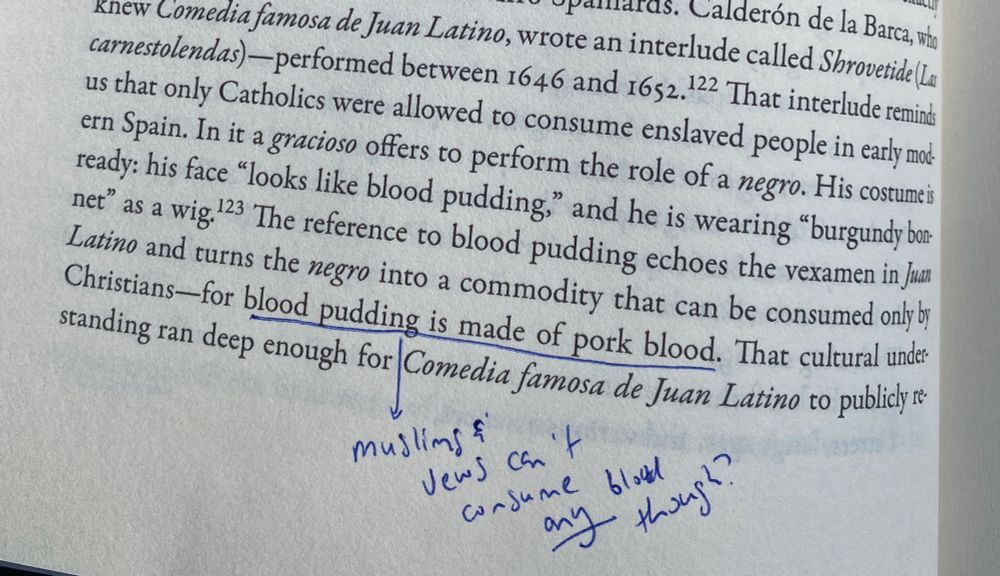 knew Comedia famosa de Juan Latino, wrote an interlude called Shrovetide (Las
carnestolendas)—performed between 1646 and 1652.122 That interlude reminds
us that only Catholics were allowed to consume enslaved people in early mod-
ern Spain. In it a gracioso offers to perform the role of a negro. His costume is
ready: his face “looks like blood pudding,” and he is wearing “burgundy bon-
net” as a wig.123 The reference to blood pudding echoes the vexamen in Juan
Latino and turns the negro into a commodity that can be consumed only by
Christians—for blood pudding is made of pork blood. That cultural under-
standing ran deep enough for Comedia famosa de Juan Latino to publicly re-
muslims &
Jews can't
consume blood
any though?
Spaniards. Calderón de la Barca, who